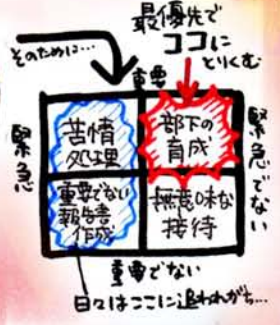 最優先で
ココに
とりくむ
そのために…
重要
緊急
苦情
処理
部下の
育成
緊急でない
重要でない
報告書
作成
無意味な
接待
重要でない
日々はここに追われがち…